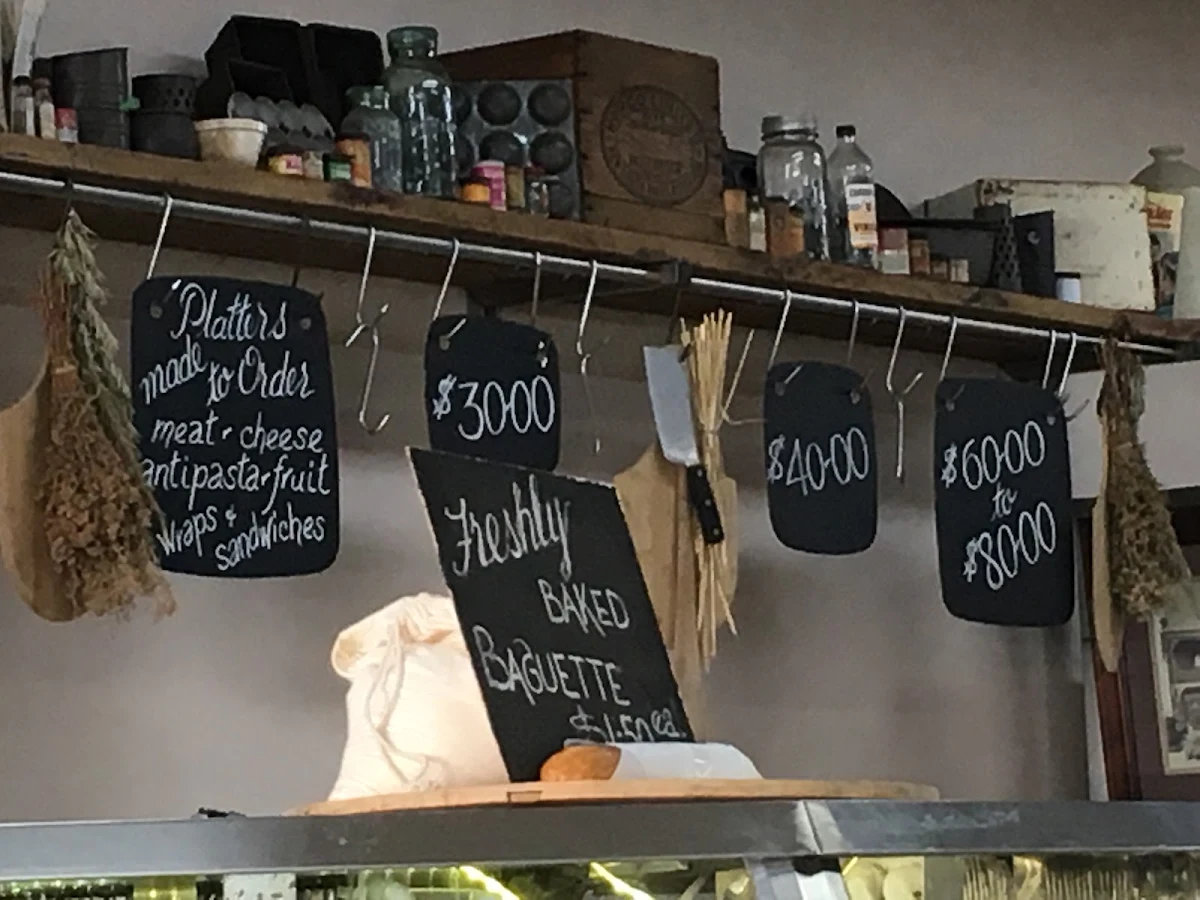 Platters
made
to Order
meat + cheese
antipasta + fruit
wraps &
sandwiches
$30·00
Freshly
BAKED
BAGUETTE
$1·50 ea.
$40·00
$60·00
to
$80·00